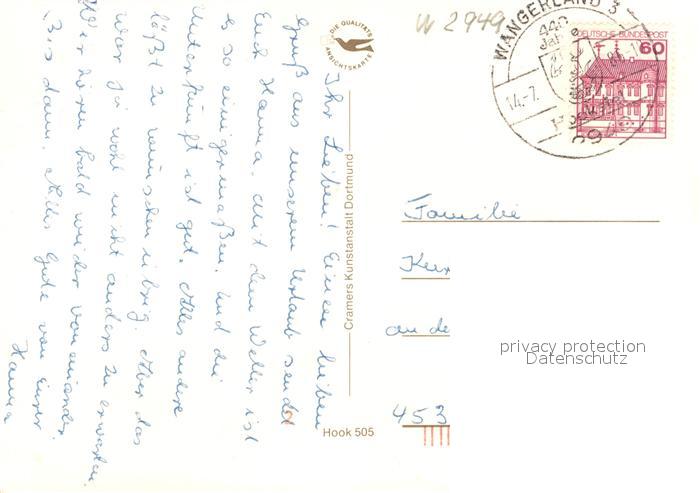 Ihr Lieben! Einen lieben
Gruß aus unserem Urlaub sendet
Euch Hanna. Mit dem Wetter ist
es so einigermaßen. Und die
Unterkunft ist gut. Alles andere
läßt zu wünschen übrig. Aber das
war ja wohl nicht anders zu erwarten.
Wir hören bald wieder voneinander.
Bis dann. Alles Gute von Eurer
Hanna
DIE QUALITÄTS
ANSICHTSKARTE
Cramers Kunstanstalt Dortmund
Hook 505
W 2949
WANGERLAND 3
14.-7.
2949
DEUTSCHE BUNDESPOST
60
Familie
an de
453
privacy protection
Datenschutz